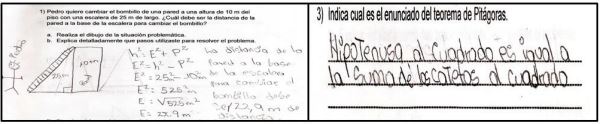 1) Pedro quiere cambiar el bombillo de una pared a una altura de 10 m del
piso con una escalera de 25 m de largo. ¿Cuál debe ser la distancia de la
pared a la base de la escalera para cambiar el bombillo?
a. Realiza el dibujo de la situación problemática.
b. Explica detalladamente que pasos utilizaste para resolver el problema.
Pedro
25m
10m
h²= E² + P²
E²= h² - P²
E² = 25² - 10²m
E² = 525m²
E = √525m²
E = 22.9m
La distancia de la
Pared a la base
de la escalera
para cambiar el
bombillo debe
ser 22,9 m de
distancia
3) Indica cual es el enunciado del teorema de Pitágoras.
Hipotenusa al cuadrado es igual a
la suma de los catetos al cuadrado